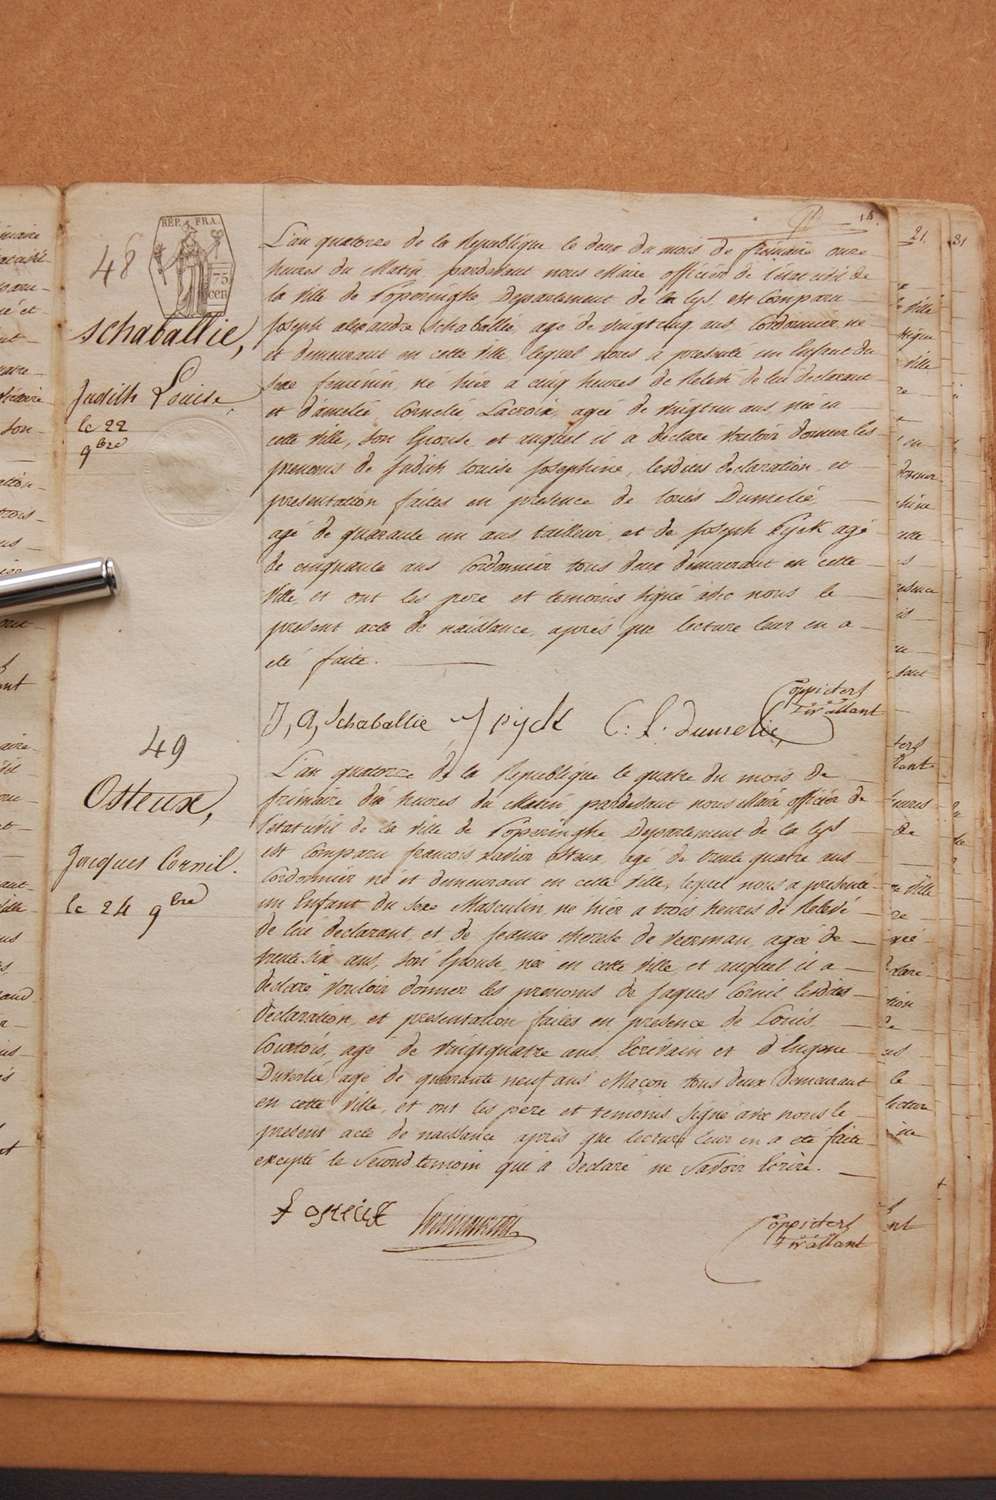 14.
REP. FRA.
75
cen
48
schaballie,
Judith Louise,
le 22
9bre
L'an quatorze de la Republique le deux du mois de frimaire onze
heures du Matin, pardevant nous Maire officier de l'état civil de
la ville de Poperinghe Departement de la Lys, est Comparu
Joseph alexandre Schaballie, agé de vingtcinq ans, Cordonnier né
et demeurant en cette ville, lequel nous a presenté un Enfant du
sexe feminin, né hier a cinq heures de Relevé de lui declarant
et d'amelie Cornelie Lacroix, agée de vingttrois ans, née en
cette ville, son Epouse, et auquel il a declaré vouloir donner les
prenoms de Judith Louise Josephine, lesdites declaration, et
presentation faites en presence de Louis Dumelié
agé de quarante un ans tailleur, et de Joseph Pyck agé
de cinquante ans Cordonnier tous deux demeurant en cette
ville, et ont les pere et temoins signé avec nous le
present acte de naissance, après que lecture leur en a
eté faite.
J, A, Schaballie J pijck C: L: Dumelie,
Coppieters
t' Wallant
49
Osteux,
Jacques Cornil.
le 24 9bre
L'an quatorze de la Republique le quatre du mois de
frimaire dix heures du Matin, pardevant nous Maire officier de
l'état civil de la ville de Poperinghe Departement de la Lys
est Comparu francois Xavier Osteux, agé de trente quatre ans
Cordonnier né et demeurant en cette ville, lequel nous a presenté
un Enfant du sexe Masculin, né hier a trois heures de Relevé
de lui declarant, et de Jeanne therese de Veerman, agée de
trente six ans, son Epouse, née en cette ville, et auquel il a
declaré vouloir donner les prenoms de Jaques Cornil lesdites
declaration, et presentation faites en presence de Louis
Courtois, agé de vingtquatre ans, Ecrivain et d'Eugene
Duverlié, agé de quarante neuf ans Macon tous deux demeurant
en cette ville, et ont les pere et temoins signé avec nous le
present acte de naissance après que lecture leur en a eté faite
excepté le Second temoin qui a declaré ne savoir Ecrire.
f osteux
Coppieters
t' Wallant
21.
31